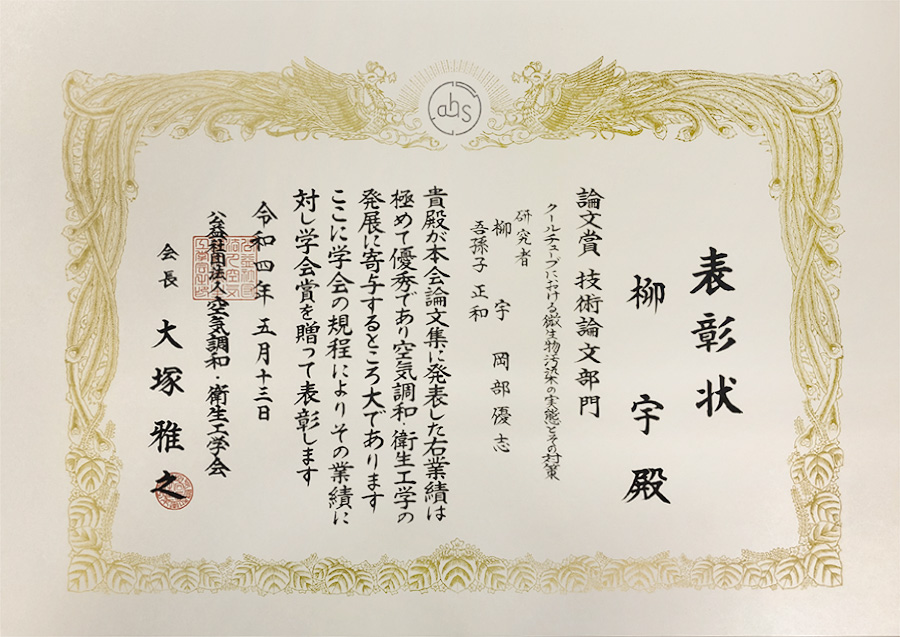 ahs
表彰状
柳宇殿
論文賞 技術論文部門
クールチューブにおける微生物汚染の実態とその対策
研究者
柳宇 岡部優志
吾孫子正和
貴殿が本会論文集に発表した右業績は
極めて優秀であり空気調和・衛生工学の
発展に寄与するところ大であります
ここに学会の規程によりその業績に
対し学会賞を贈って表彰します
令和四年五月十三日
公益社団法人空気調和・衛生工学会
会長 大塚雅之